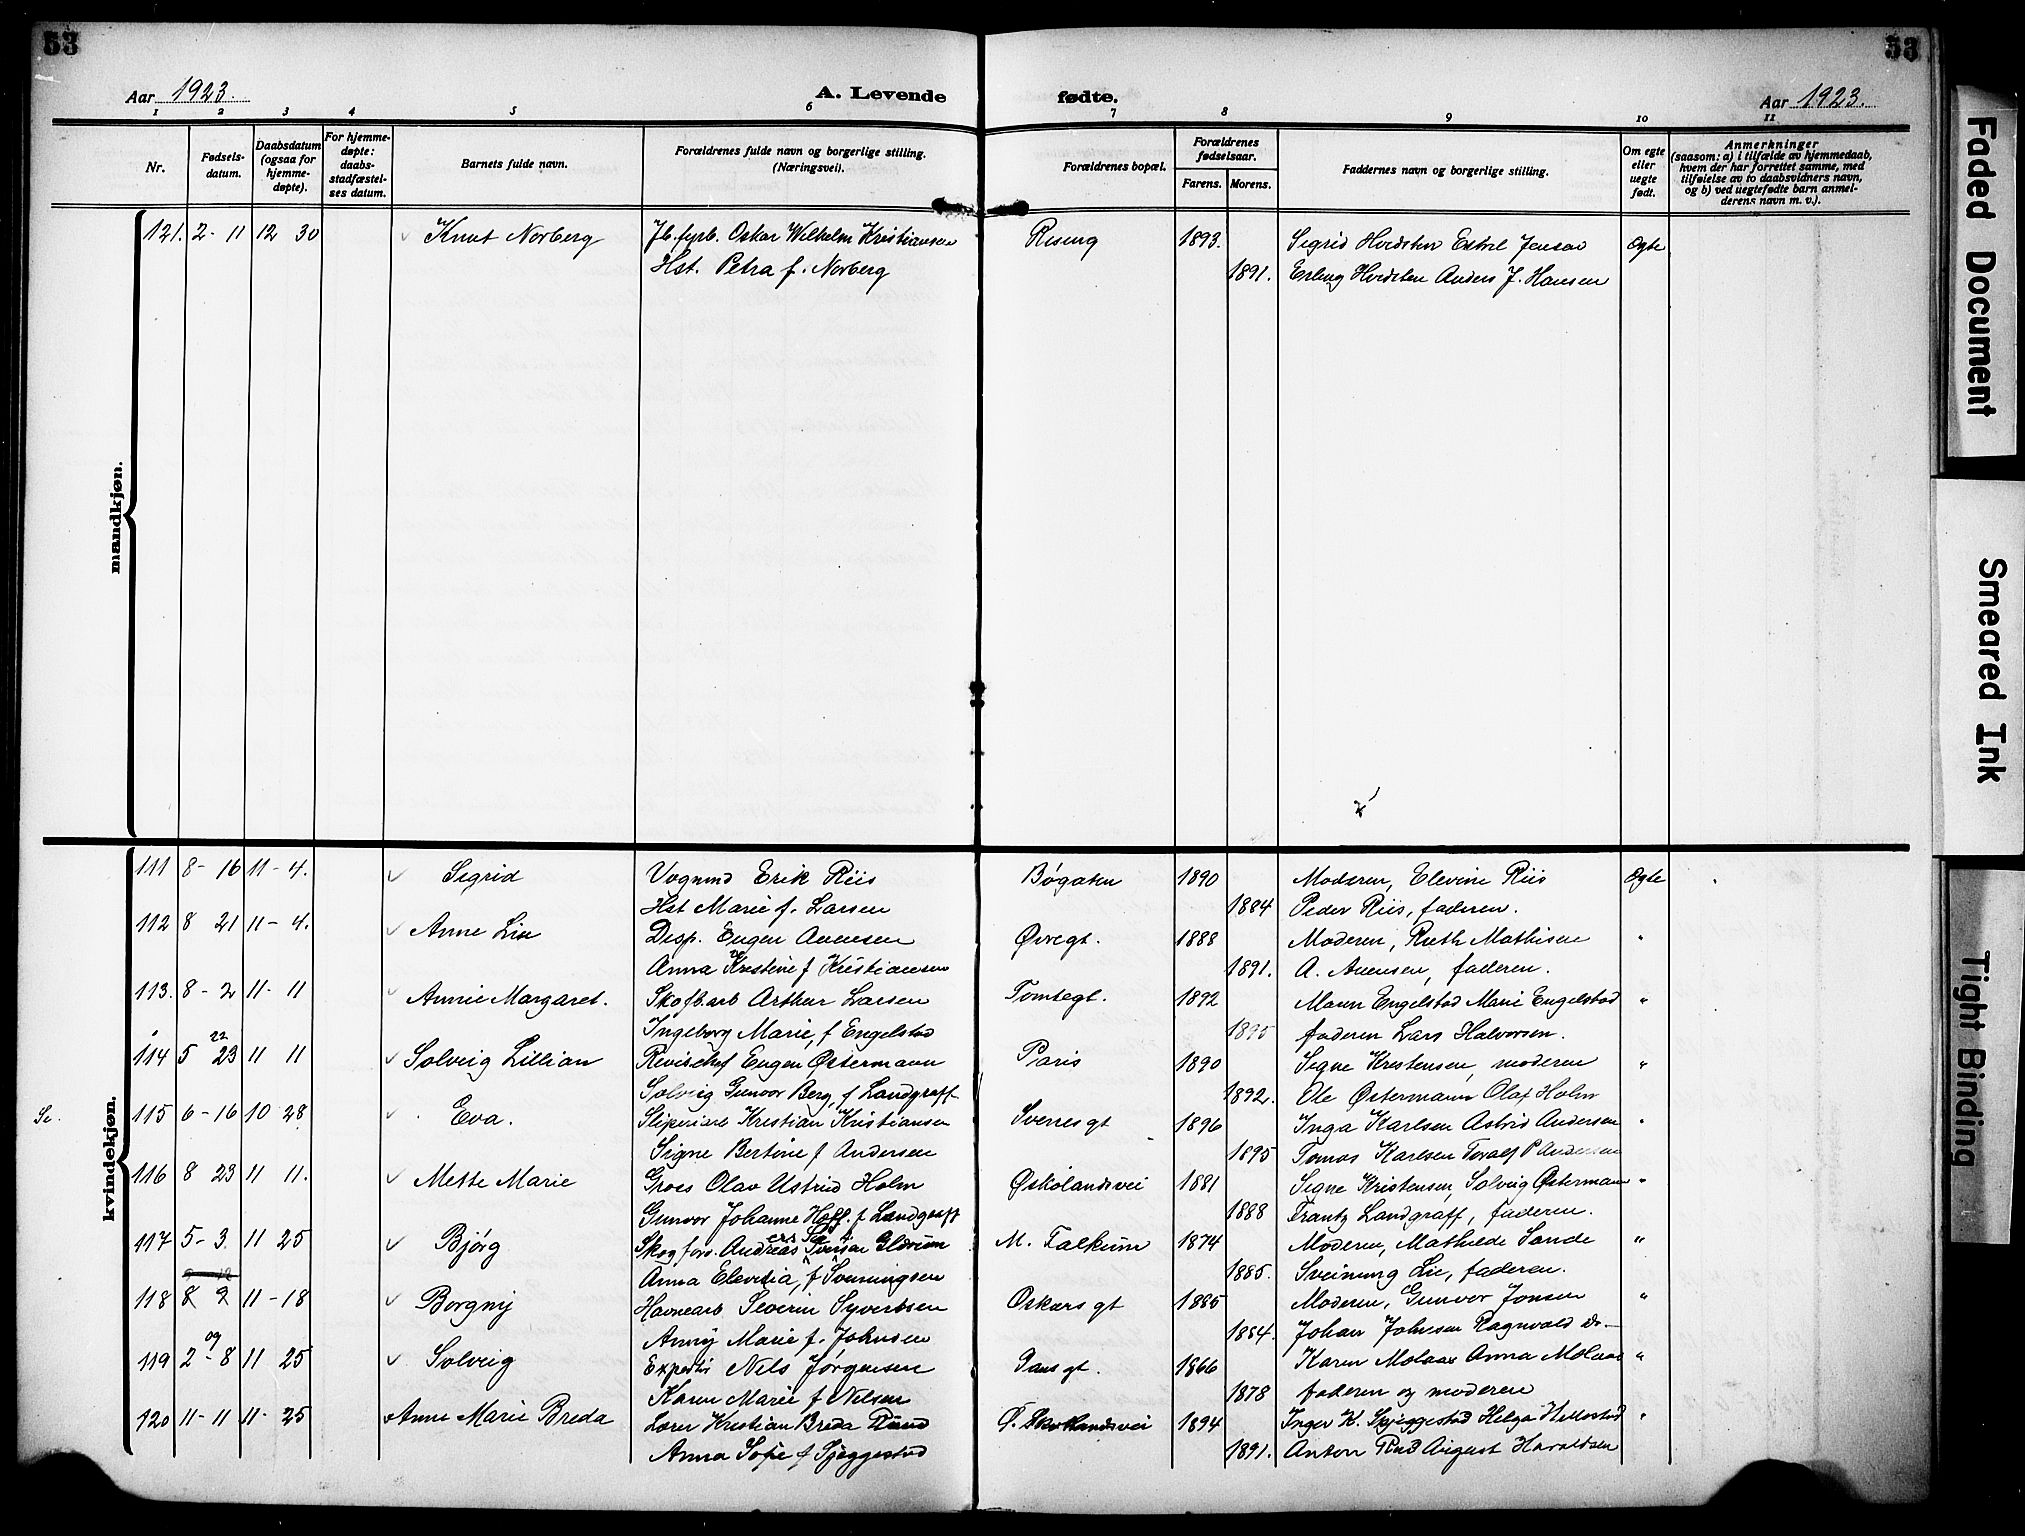 53
53
Aar 1923.
A. Levende
fødte.
Aar 1923.
1 2 3 4 5 6 7 8 9 10 11
Nr.
Fødsels-
datum.
Daabsdatum
(ogsaa for
hjemme-
døpte).
For hjemme-
døpte:
daabs-
stadfæstel-
ses datum.
Barnets fulde navn.
Forældrenes fulde navn og borgerlige stilling.
(Næringsvei).
Forældrenes bopæl.
Forældrenes
fødselsaar.
Farens. Morens.
Faddernes navn og borgerlige stilling.
Om egte
eller
uegte
født.
Anmerkninger
(saasom: a) i tilfælde av hjemmedaab,
hvem der har forrettet samme, med
tilføielse av to daabsvidners navn,
og b) ved uegtefødte barn anmel-
derens navn m. v.).
mandkjøn.
121. 2- 11 12 30 Knut Norberg Jb.fyrb. Oskar Wilhelm Kristiansen Rising 1893. Sigrid Hvidsten Jensen Egte
Hst. Petra f. Norberg 1891. Erling Hvidsten Anders J. Hansen
kvindekjøn.
111 8- 16 11- 4. Sigrid Vognmd Erik Riis Bøgaten 1890 Moderen, Elevine Riis Egte
Hst Marie f. Larsen 1884 Peder Riis, faderen.
112 8 21 11- 4. Anne Lise Disp. Eugen Avensen Øvregt. 1888 Moderen, Ruth Mathisen "
Anna Kristine f Kristiansen 1891. A. Avensen, faderen.
113. 8- 2 11- 11 Annie Margaret. Skofb.arb Arthur Larsen Tomtegt. 1892 Maren Engelstad Marie Engelstad "
Ingeborg Marie, f Engelstad 1895 faderen Lars Halvorsen.
22
114 5 23 11 11 Solveig Lillian Revischef Eugen Østermann Paris 1890 Signe Kristensen, moderen "
Solveig Gunvor Berg, f Landgraff 1892. Ole Østermann Olaf Holm
115 6-16 10 28 Eva. Sliperiarb Kristian Kristiansen Sverresgt 1896 Inga Karlsen Astrid Andersen "
Signe Bertine f Andersen 1895 Tomas Karlsen Toralf P Andersen
116 8 23 11 11. Mette Marie Gros Olav Astrid Holm 1881 Signe Kristensen, Solveig Østermann "
Gunvor Johanne Hoff. f Landgraff 1888 Frantz Landgraff, faderen.
117 5-3. 11 25 Bjørg Skogforv. Andreas M. Falkum 1874 Moderen, Mathilde Sande "
Anna f Svenningsen 1885. Sveinung Lie, faderen.
118 8 2 11-18 Borgny Havnearb Severin Syvertsen Oskarsgt 1885 Moderen, Gunvor Jonsen "
Anny Marie f. Johnsen 1884. Johan Johnsen Ragnvald do-
og
119 2-8 11 25 Solveig Expeditr Nils Jørgensen 1866 Karen Anna "
Karen Marie f Nilsen 1878 faderen og moderen
120 11-11 11- 25 Anne Marie Breda Lærer Kristian Breda Ø. 1894 Inger K. Skjeggestad Helga "
Anna Sofie f Skjeggestad 1891. Anton August Haraldsen
Faded Document
Smeared Ink
Tight Binding